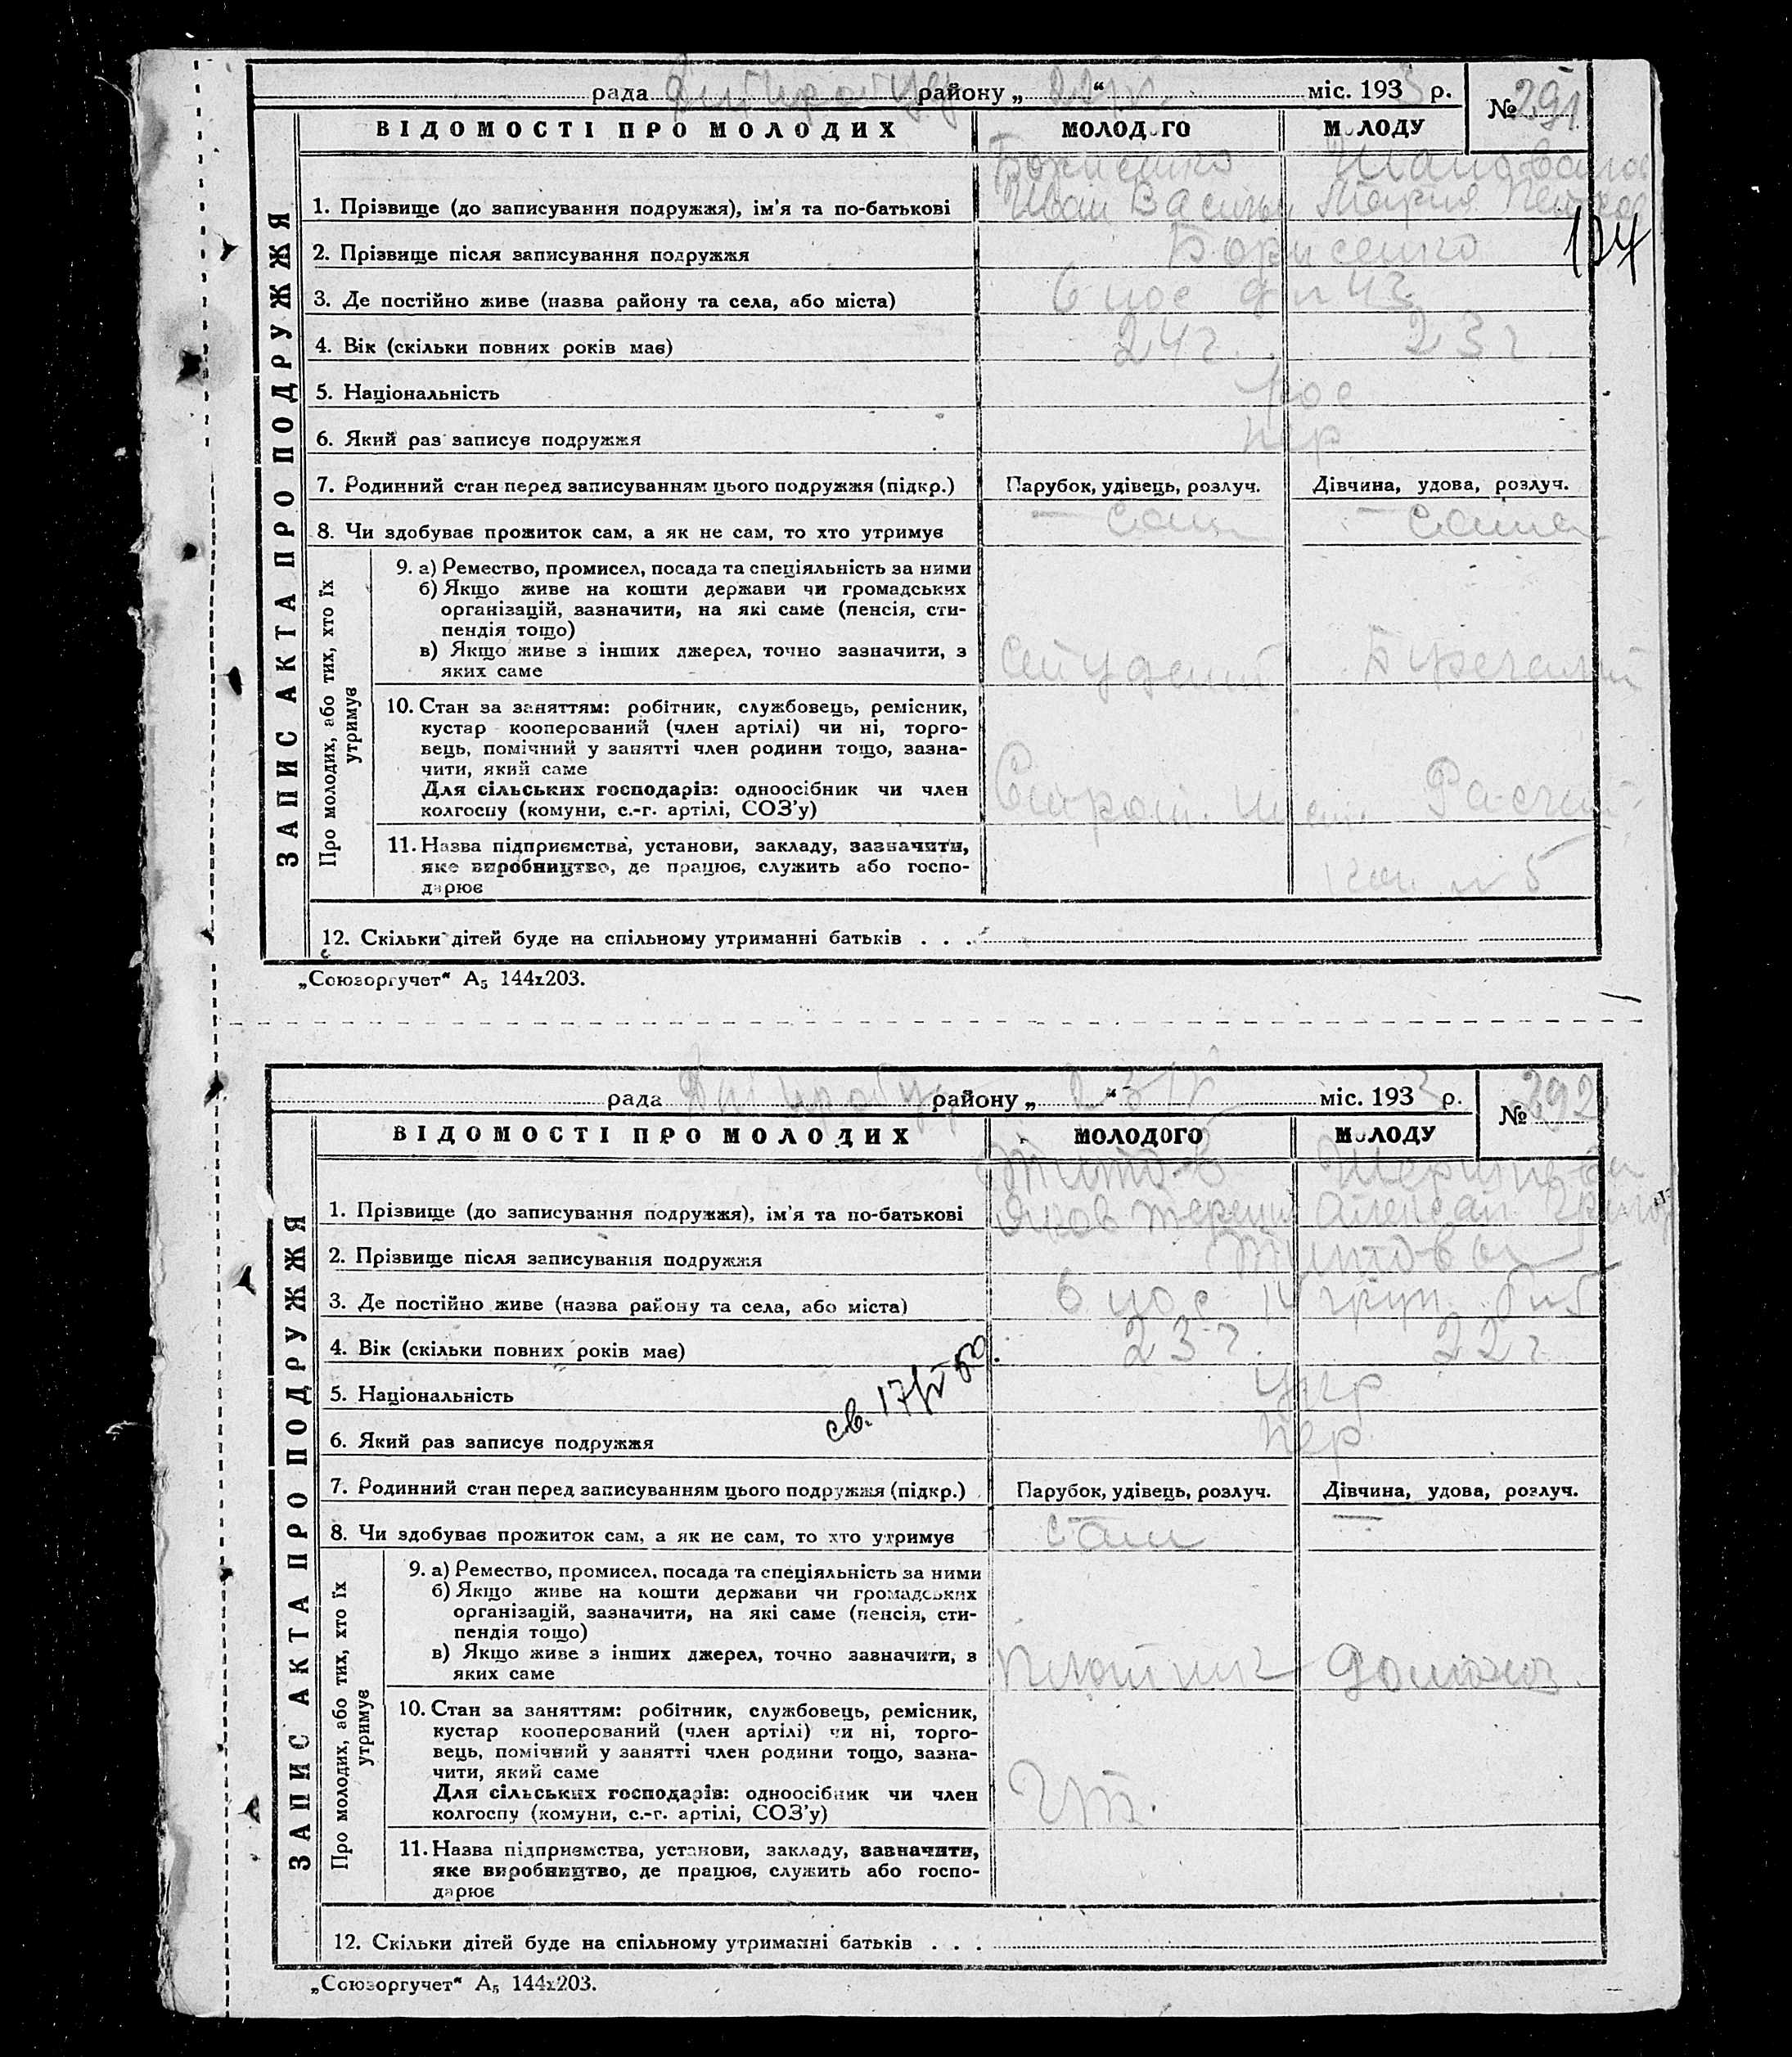 рада Дніпробуд району „ 22/IV “ міс. 1933 р.
№ 291
ВІДОМОСТІ ПРО МОЛОДИХ МОЛОДОГО МОЛОДУ
ЗАПИС АКТА ПРО ПОДРУЖЖЯ
Борисенко Шаповалов
1. Прізвище (до записування подружжя), ім’я та по-батькові Иван Василь Мария
2. Прізвище після записування подружжя Борисенко
124
3. Де постійно живе (назва району та села, або міста) 6 пос
4. Вік (скільки повних років має) 24 г. 23 г
5. Національність
6. Який раз записує подружжя пер
7. Родинний стан перед записуванням цього подружжя (підкр.) Парубок, удівець, розлуч. Дівчина, удова, розлуч.
8. Чи здобуває прожиток сам, а як не сам, то хто утримує сам сама
Про молодих, або тих, хто їх
утримує
9. а) Ремество, промисел, посада та спеціяльність за ними
б) Якщо живе на кошти держави чи громадських
організацій, зазначити, на які саме (пенсія, сти-
пендія тощо)
в) Якщо живе з інших джерел, точно зазначити, з
яких саме студент
10. Стан за заняттям: робітник, службовець, ремісник,
кустар кооперований (член артілі) чи ні, торго-
вець, помічний у занятті член родини тощо, зазна-
чити, який саме
Для сільських господарів: одноосібник чи член
колгоспу (комуни, с.-г. артілі, СОЗ’у)
11. Назва підприємства, установи, закладу, зазначити,
яке виробництво, де працює, служить або госпо-
дарює № 5
12. Скільки дітей буде на спільному утриманні батьків . . .
„Союзоргучет“ А₅ 144х203.
рада Дніпробуд району „ 23 IV “ міс. 1933 р.
№ 292
ВІДОМОСТІ ПРО МОЛОДИХ МОЛОДОГО МОЛОДУ
ЗАПИС АКТА ПРО ПОДРУЖЖЯ
Титов
1. Прізвище (до записування подружжя), ім’я та по-батькові Яков Терент Александ Григор
2. Прізвище після записування подружжя Титовы
3. Де постійно живе (назва району та села, або міста) 6 пос
4. Вік (скільки повних років має) 23 г. 22 г
св. 17/IV 50
5. Національність укр
6. Який раз записує подружжя пер
7. Родинний стан перед записуванням цього подружжя (підкр.) Парубок, удівець, розлуч. Дівчина, удова, розлуч.
8. Чи здобуває прожиток сам, а як не сам, то хто утримує сам
Про молодих, або тих, хто їх
утримує
9. а) Ремество, промисел, посада та спеціяльність за ними
б) Якщо живе на кошти держави чи громадських
організацій, зазначити, на які саме (пенсія, сти-
пендія тощо)
в) Якщо живе з інших джерел, точно зазначити, з
яких саме плотник домохоз.
10. Стан за заняттям: робітник, службовець, ремісник,
кустар кооперований (член артілі) чи ні, торго-
вець, помічний у занятті член родини тощо, зазна-
чити, який саме
Для сільських господарів: одноосібник чи член
колгоспу (комуни, с.-г. артілі, СОЗ’у)
11. Назва підприємства, установи, закладу, зазначити,
яке виробництво, де працює, служить або госпо-
дарює
12. Скільки дітей буде на спільному утриманні батьків . . .
„Союзоргучет“ А₅ 144х203.